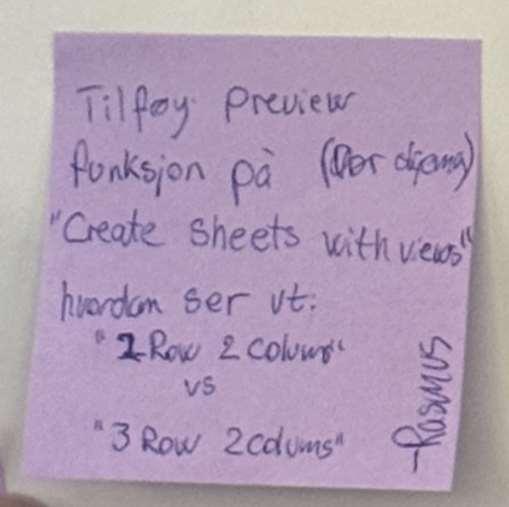 Tilføy preview
funksjon på
"Create sheets with views"
hvordan ser ut:
"2 Row 2 colums"
vs
"3 Row 2 colums"
-Rasmus